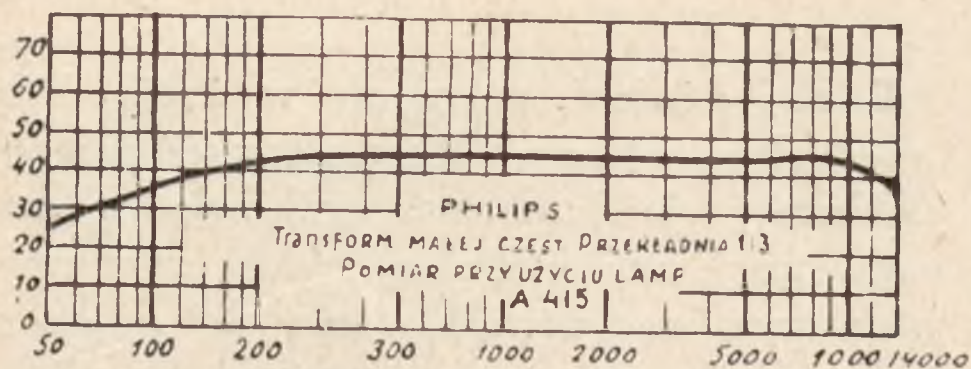 70
60
50
40
30
20
10
0
PHILIPS
TRANSFORM MAŁEJ CZĘST PRZEKŁADNIA 1:3
POMIAR PRZY UŻYCIU LAMP
A 415
50 100 200 300 1000 2000 5000 10000 14000